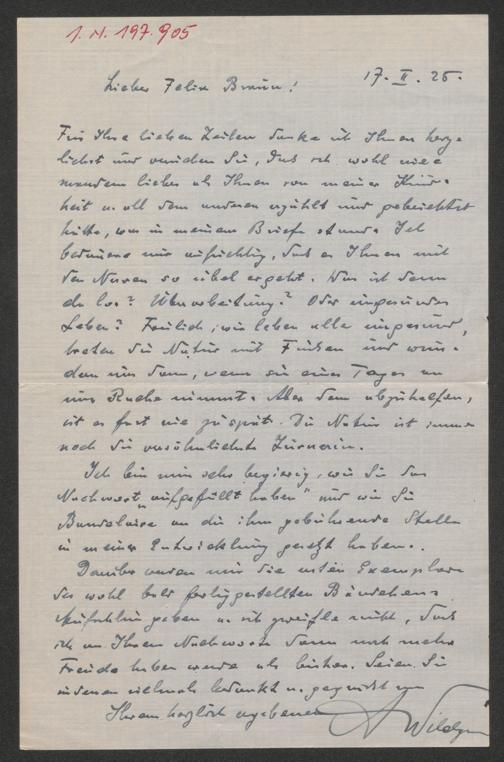 I. N. 197.905
17. II. 25.
Lieber Felix Braun!
Für Ihre lieben Zeilen danke ich Ihnen herz-
lichst und Sie, daß ich wohl nie-
mandem lieber als Ihnen von meiner Kind-
heit u. all dem anderen erzählt und gebeichtet
hätte, was in meinem Briefe stand. Ich
bedauere nur aufrichtig, daß es Ihnen mit
den Nerven so übel ergeht. Was ist denn
da los? Überarbeitung? Oder ungesundes
Leben? Freilich, wir leben alle ungesund,
treten die Natur mit Füßen und wun-
dern uns dann, wenn sie eines Tages an
uns Rache nimmt. Aber dem abzuhelfen,
ist es fast nie zu spät. Die Natur ist immer
noch die versöhnlichste Zürnerin.
Ich bin nun sehr begierig, wie Sie das
Nachwort „aufgefüllt haben" und wie Sie
Baudelaire an die ihm gebührende Stelle
in meiner Entwicklung gesetzt haben.
Darüber werden mir die ersten Exemplare
des wohl bald fertiggestellten Bändchens
Aufschluß geben u. ich zweifle nicht, daß
ich an Ihrem Nachworte dann noch mehr
Freude haben werde als bisher. Seien Sie
indessen vielmals bedankt u. gegrüßt von
Ihrem herzlich ergebenen A Wildgans